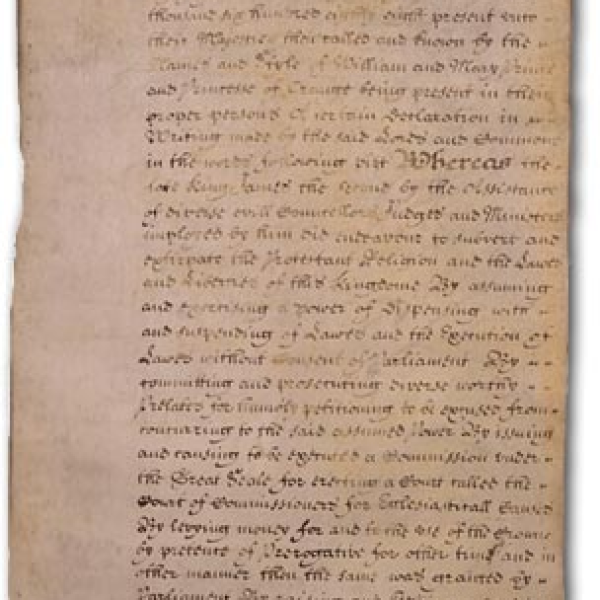 thousand six hundred eighty eight present unto
their Majesties then called and known by the
Names and Stile of William and Mary Prince
and Princesse of Orange being present in their
proper persons A certain Declaration in
Writing made by the said Lords and Commons
in the words following vizt Whereas the
late King James the second by the Assistance
of diverse evill Councellors Judges and Ministers
imployed by him did endeavour to subvert and
extirpate the Protestant Religion and the Lawes
and Liberties of this Kingdome By assuming
and exercising a power of Dispensing with
and suspending of Lawes and the Execution of
Lawes without Consent of Parliament By
committing and prosecuting diverse worthy
Prelates for humbly petitioning to be excused from
concurring to the said assumed Power By issuing
and causing to be executed a Commission under
the Great Seale for erecting a Court called the
Court of Commissioners for Ecclesiasticall Causes
By levying money for and to the use of the Crowne
by pretence of Prerogative for other time and in
other manner then the same was granted By
Parliament By raising and